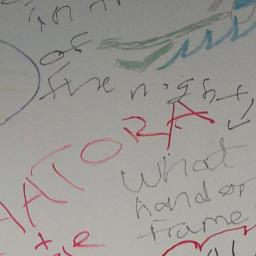 in
of
the night
AATORA
What
hand or
frame